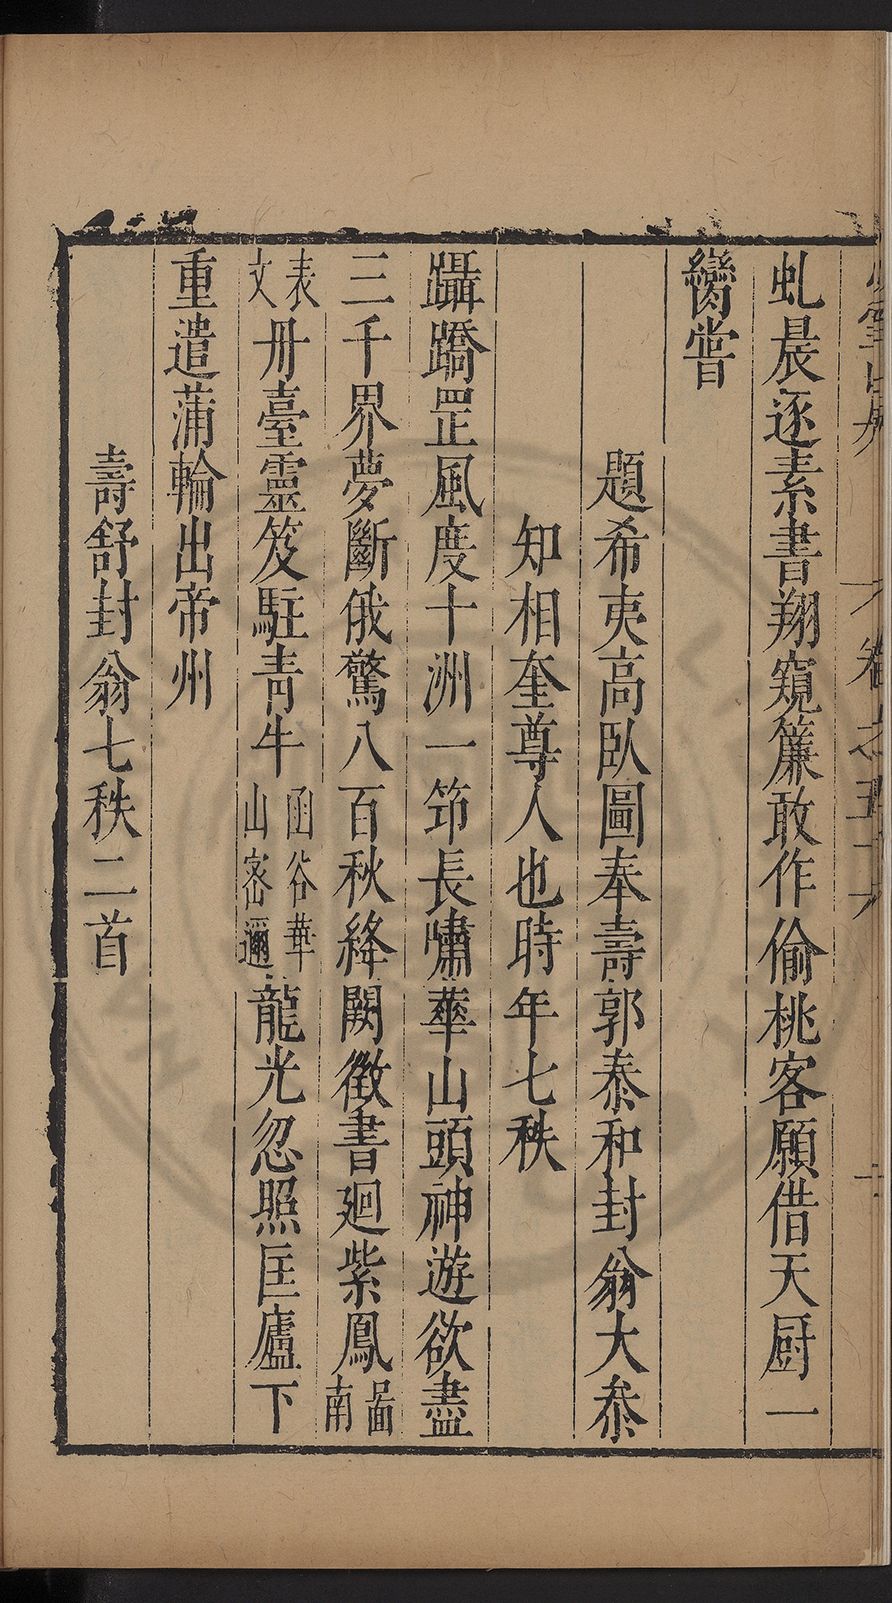 虬晨逐素書翔窺簾敢作偷桃客願借天厨一
臠嘗
題希夷高臥圖奉壽郭泰和封翁大叅
知相奎尊人也時年七秩
躡蹻罡風度十洲一笻長嘯華山頭神遊欲盡
三千界夢斷俄驚八百秋絳闕徵書廻紫鳳圖南
表文丹臺靈笈駐青牛函谷華山密邇龍光忽照匡廬下
重遣蒲輪出帝州
壽舒封翁七秩二首